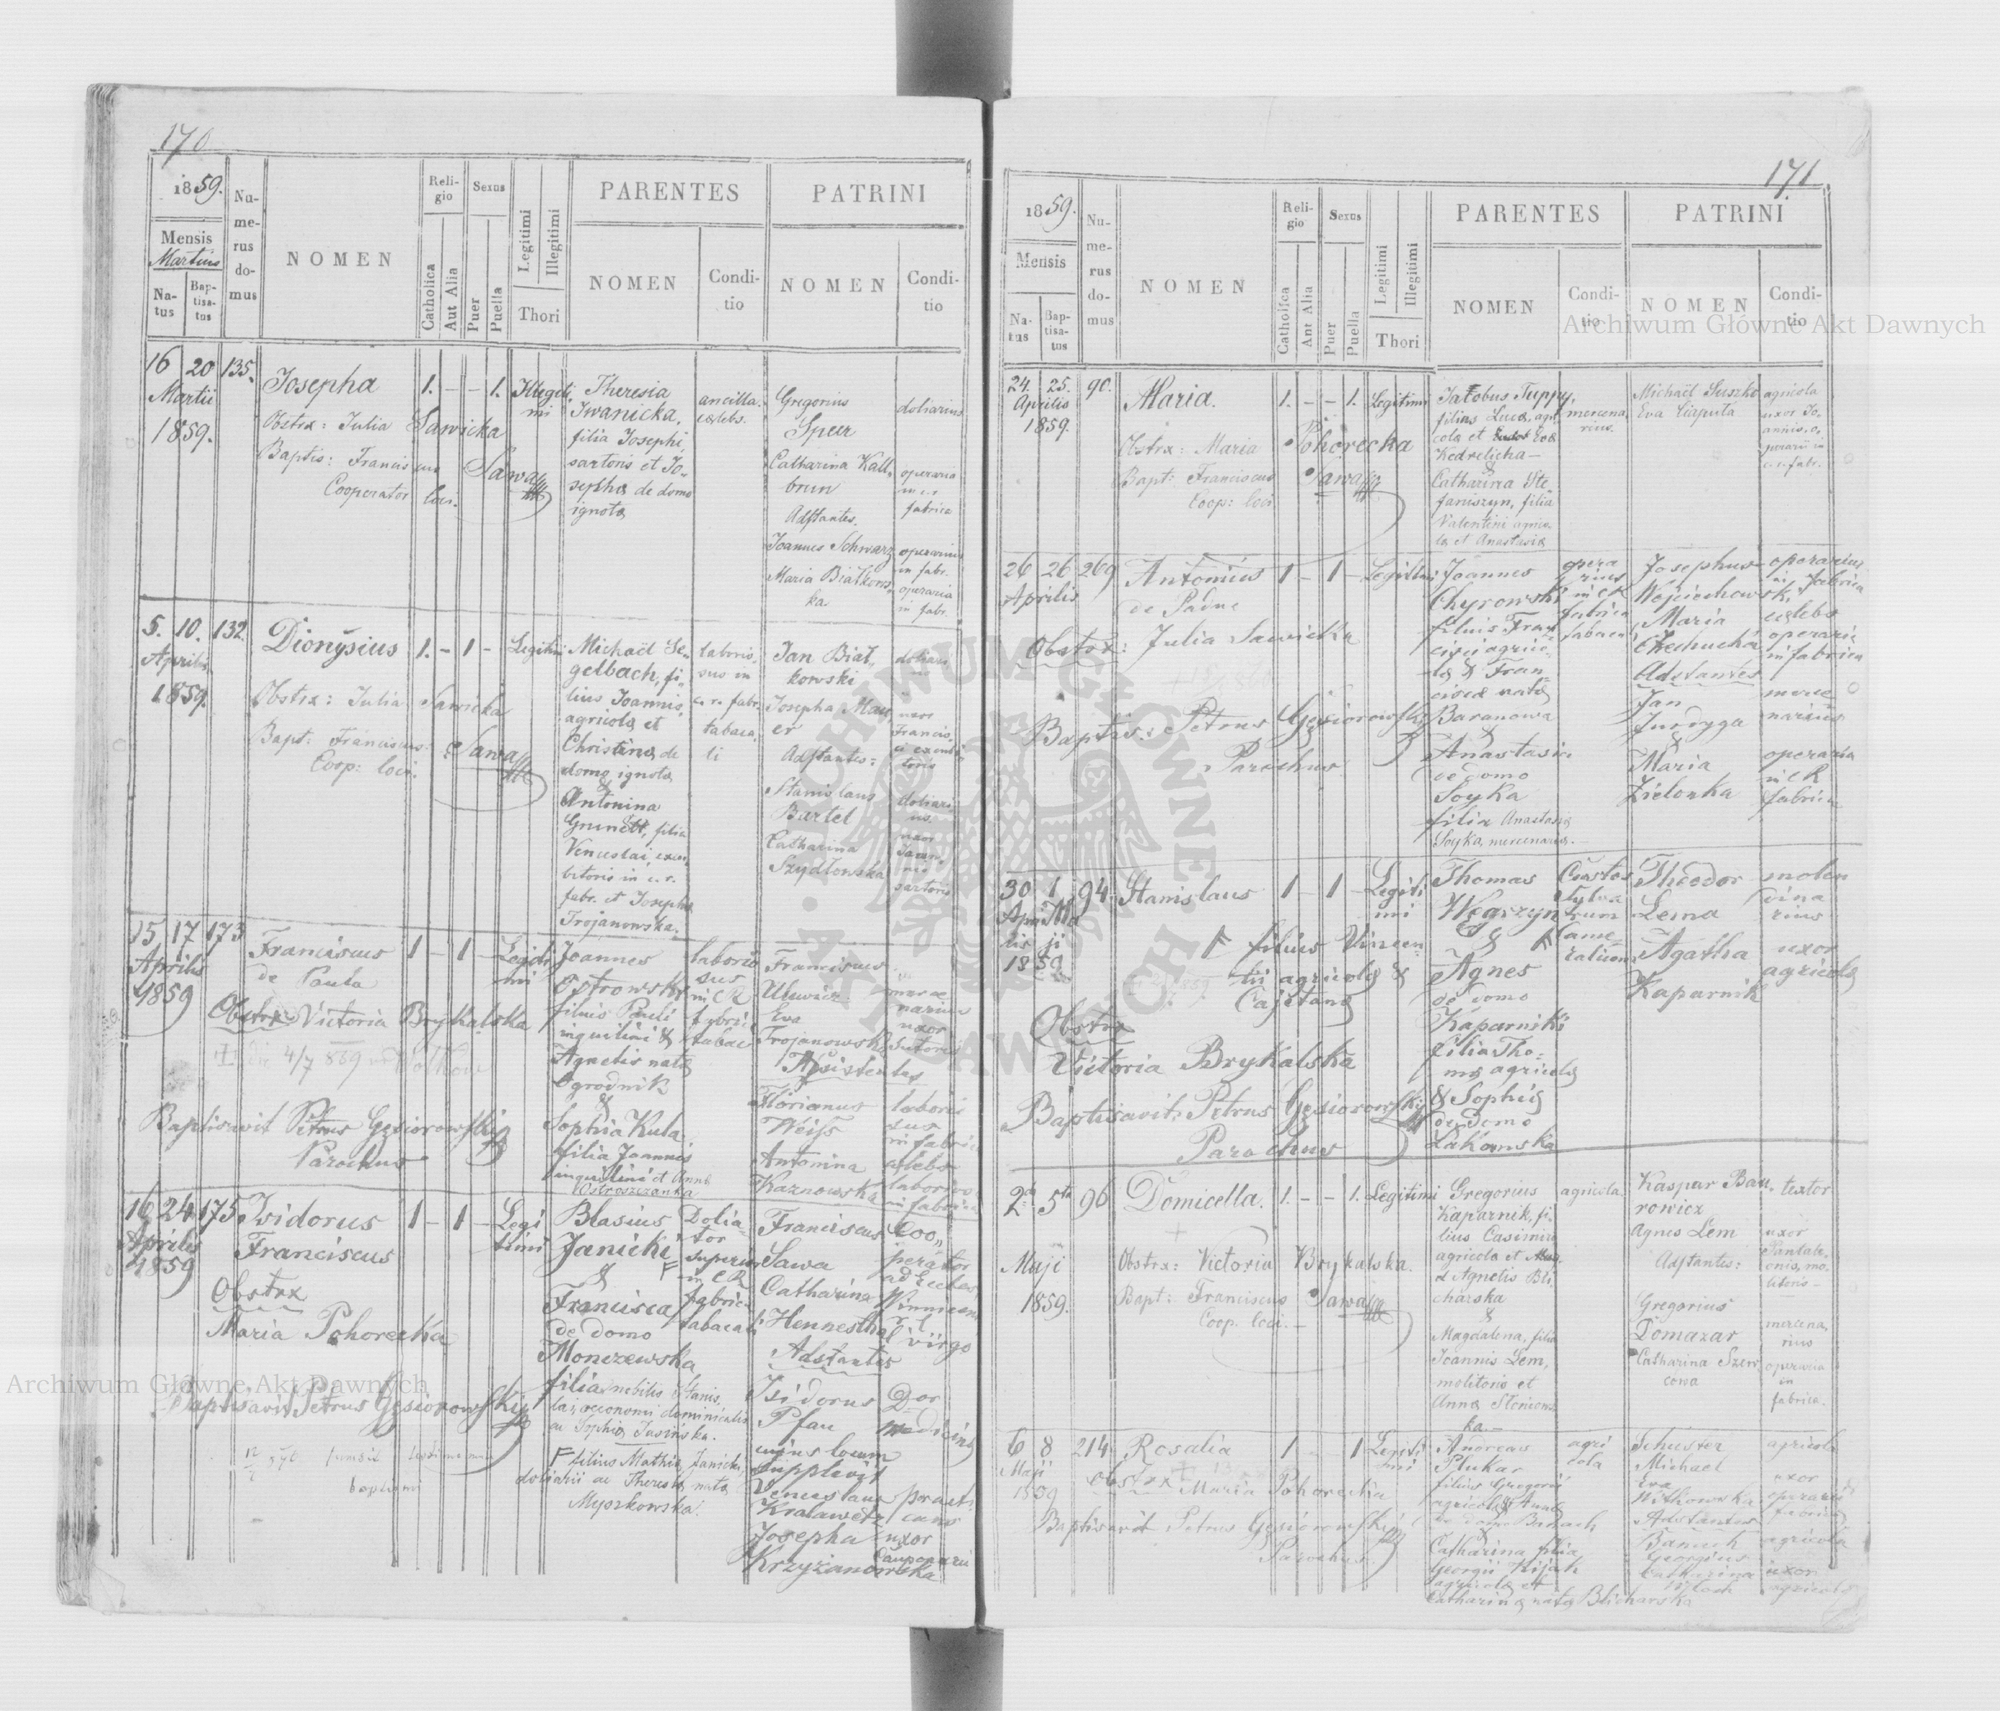 170
1859.
Mensis
Martius
Na-
tus
Bap-
tisa-
tus
Nu-
me-
rus
do-
mus
NOMEN
Reli-
gio
Catholica
Aut Alia
Sexus
Puer
Puella
Legitimi
Illegitimi
Thori
PARENTES
NOMEN
Condi-
tio
PATRINI
NOMEN
Condi-
tio
16 20 135.
Martii
1859.
Josepha 1. – – 1. Illegiti
mi
Obstx: Julia Sawicka
Baptis: Franciscus Sawa
Cooperator loci.
Theresia
Iwanicka,
filia Josephi
sartoris et Jo-
sepha de domo
ignota
ancilla.
cælebs.
Gregorius
Speer
Catharina Kall-
brun
Adstantes.
Joannes Schwarz
Maria Białkows-
ka
doliarius
operaria
in c.r.
fabrica
operarius
in fabr.
operaria
in fabr.
5. 10. 132.
Aprilis
1859.
Dionÿsius 1. – 1 – Legitimi
Obstx: Julia Sawicka
Bapt: Franciscus Sawa
Coop: loci.
Michaël Se-
gelbach, fi-
lius Joannis,
agricolæ et
Christinæ de
domo ignota
&
Antonina
filia
Venceslai, excu-
bitoris in c. r.
fabr. et Josepha
Trojanowska.
laborio-
sus in
c. r. fabr.
tabaca-
li
Jan Biał-
kowski
Josepha May-
er
Adstantes:
Stanislaus
Bartel
Catharina
Szydłowska
doliari-
us
uxor
Francis-
ci excubi-
toris
doliari-
us.
uxor
Joan-
nis
sartoris
15 17 173
Aprilis
1859
Franciscus 1 – 1 – Legiti
mi
de Paula
Obstrx Victoria Brykalska
4/7 869
Baptisavit Petrus Gęsiorowski
Parochus
Joannes
Ostrowski
filius Pauli
inquilini &
Agnetis nata
Ogrodnik
&
Sophia Kula
filia Joannis
inquilini et Anna
Ostroszczanka
laborio
sus
in CR
fabri
tabac
Franciscus
Eva
Trojanowska
Assistentes
Florianus
Weiss
Antonina
Kaznowska
merce
narius
uxor
sutoris
labori
sus
in fabrica
cælebs
laborio
in fabrica
16 24 175
Aprilis
1859
Isidorus 1 – 1 – Legi
timi
Franciscus
Obstrx
Maria Pohorecka
Baptisavit Petrus Gęsiorowski
Blasius
Janicki F
&
Francisca
de domo
Monczewska
filia nobilis Stanis-
lai, œconomi dominicalis
ac Sophia Jasińska.
F filius Mathiæ Janicki,
doliarii ac Theresia, nata
Myszkowska.
Dolia-
tor
superior
in CR
fabrica
tabacali
Franciscus
Sawa
Catharina
Hennesthal
Adstantes
Isidorus
Pfau
cujus locum
supplevit
Venceslaus
Kralawetz
Josepha
Krzyżanowska
Coo-
perator
ad Eccles.
Winnicen
virgo
Dor
medicina
practi
cans
uxor
Cauponarii
171
1859.
Mensis
Na-
tus
Bap-
tisa-
tus
Nu-
me-
rus
do-
mus
NOMEN
Reli-
gio
Catholica
Ant Alia
Sexus
Puer
Puella
Legitimi
Illegitimi
Thori
PARENTES
NOMEN
Condi-
tio
PATRINI
NOMEN
Condi-
tio
24. 25. 90.
Aprilis
1859.
Maria. 1. – – 1. Legitimi
Obstrx: Maria Pohorecka
Bapt: Franciscus Sawa
Coop: loci
Jakobus Tuppy,
filius Lucæ, agri-
colæ et Eva
Kedrelicha –
&
Catharina Ste-
faniszyn, filia
Valentini agrico-
læ et Anastasiæ
mercena-
rius.
Michaël Suszko
Eva Ciaputa
agricola
uxor Jo-
annis, o-
perarii in
c. r. fabr.
26 26 269
Aprilis
Antonius 1 – 1 – Legitimi
de Padua
Obstrx: Julia Sawicka
Baptis: Petrus Gęsiorowski
Parochus
Joannes
Chyrowski
filius Fran
cisci agrico-
læ & Fran-
cisca nata
Baranowa
&
Anastasia
de domo
Soyka
filia Anastasia
Soyka, mercenaria. –
opera
rius
in CR
fabrica
tabaca
Josephus
Wojciechowski
Maria
Czechucha
Adstantes
Jan
Jurdyga
&
Maria
Zielonka
operarius
in fabrica
cælebs
operaria
in fabrica
merce
narius
operaria
in CR
fabrica
30 1 94.
Apri Ma
lis ji
1859
Stanislaus 1 – 1 – Legiti
mi
F filius Vincen
tii agricolæ &
Cajetana
Obstrx
Victoria Brykalska
Baptisavit Petrus Gęsiorowski
Parochus
Thomas
Węgrzyn
& F
Agnes
de domo
Kaparniki
filia Tho-
mæ agricolæ
& Sophia
de domo
Łakowska
Custos
Sylva
rum
Came
ralium
Theodor
Lema
Agatha
Kaparnik
molen
dina
rius
uxor
agricolæ
2da 5ta 96
Maji
1859.
Domicella. 1. – – 1. Legitimi
Obstrx: Victoria Brykalska.
Bapt: Franciscus Sawa
Coop. loci. –
Gregorius
Kaparnik, fi-
lius Casimiri
agricola et
Agnetis Bli-
charska
&
Magdalena, filia
Joannis Lem,
molitoris et
Anna Słonions-
ka. –
agricola.
Kaspar Bau-
rowicz
Agnes Lem
Adstantes:
Gregorius
Domazar
Catharina Szew
cowa
textor
uxor
Pantale-
onis, mo-
litoris –
mercena-
rius
operaria
in
fabrica.
6 8 214.
Maji
1859
Rosalia 1 – – 1 Legiti
mi
Obstrx Maria Pohorecka
Baptisavit Petrus Gęsiorowski
Parochus.
Andreas
Plukar
filius Gregorii
agricolæ & Anna
de domo Banach
&
Catharina filia
Georgii Kijak
agricola et
Catharina nata Blicharska
agri
cola
Schuster
Michael
Eva
Witkowska
Adstantes
Banach
Georgius
Catharina
Wlach
agricola
uxor
operarii
fabrica
agricola
uxor
agricola
Archiwum Główne Akt Dawnych
Archiwum Główne Akt Dawnych
ARCHIWUM GŁÓWNE AKT DAWNYCH